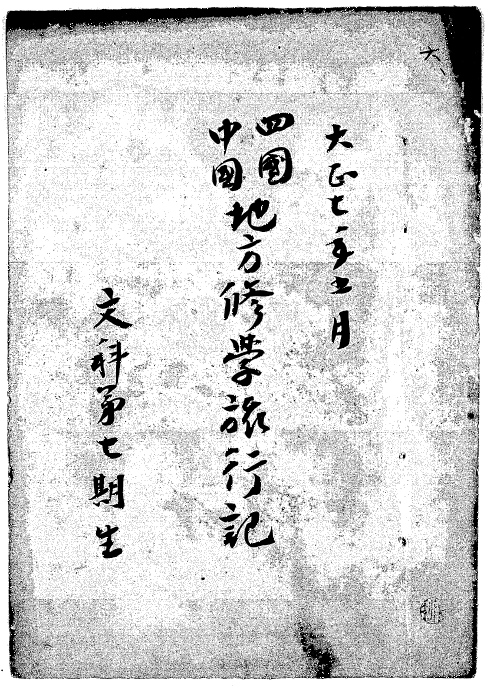 六、
大正七年五月
四國
中國
地方修學旅行記
文科第七期生